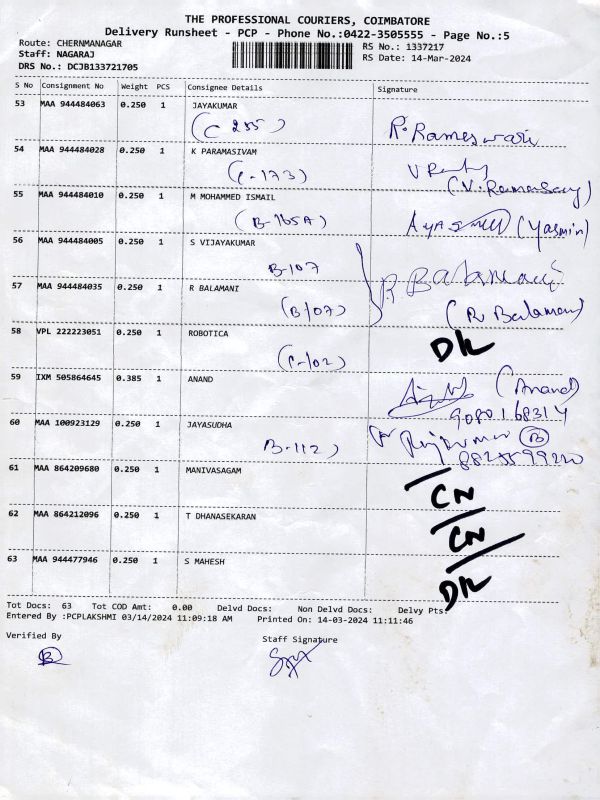 THE PROFESSIONAL COURIERS, COIMBATORE
Delivery Runsheet - PCP - Phone No.:0422-3505555 - Page No.:5
Route: CHERNMANAGAR RS No.: 1337217
Staff: NAGARAJ RS Date: 14-Mar-2024
DRS No.: DCJB133721705
S No Consignment No Weight PCS Consignee Details Signature
53 MAA 944484063 0.250 1 JAYAKUMAR
(C 255) R. Rameswari
54 MAA 944484028 0.250 1 K PARAMASIVAM
(C-173)
55 MAA 944484010 0.250 1 M MOHAMMED ISMAIL
(B-165A) (Yasmin)
56 MAA 944484005 0.250 1 S VIJAYAKUMAR
B-107 R. Balamani
57 MAA 944484035 0.250 1 R BALAMANI
(B/07) (R. Balamani)
58 VPL 222223051 0.250 1 ROBOTICA
(C-102) DL
59 IXM 505864645 0.385 1 ANAND (Anand)
9080168314
60 MAA 100923129 0.250 1 JAYASUDHA
B-112) Rajkumar B
61 MAA 864209680 0.250 1 MANIVASAGAM
CN
62 MAA 864212096 0.250 1 T DHANASEKARAN
CN
63 MAA 944477946 0.250 1 S MAHESH
DL
Tot Docs: 63 Tot COD Amt: 0.00 Delvd Docs: Non Delvd Docs: Delvy Pts:
Entered By :PCPLAKSHMI 03/14/2024 11:09:18 AM Printed On: 14-03-2024 11:11:46
Verified By Staff Signature
B